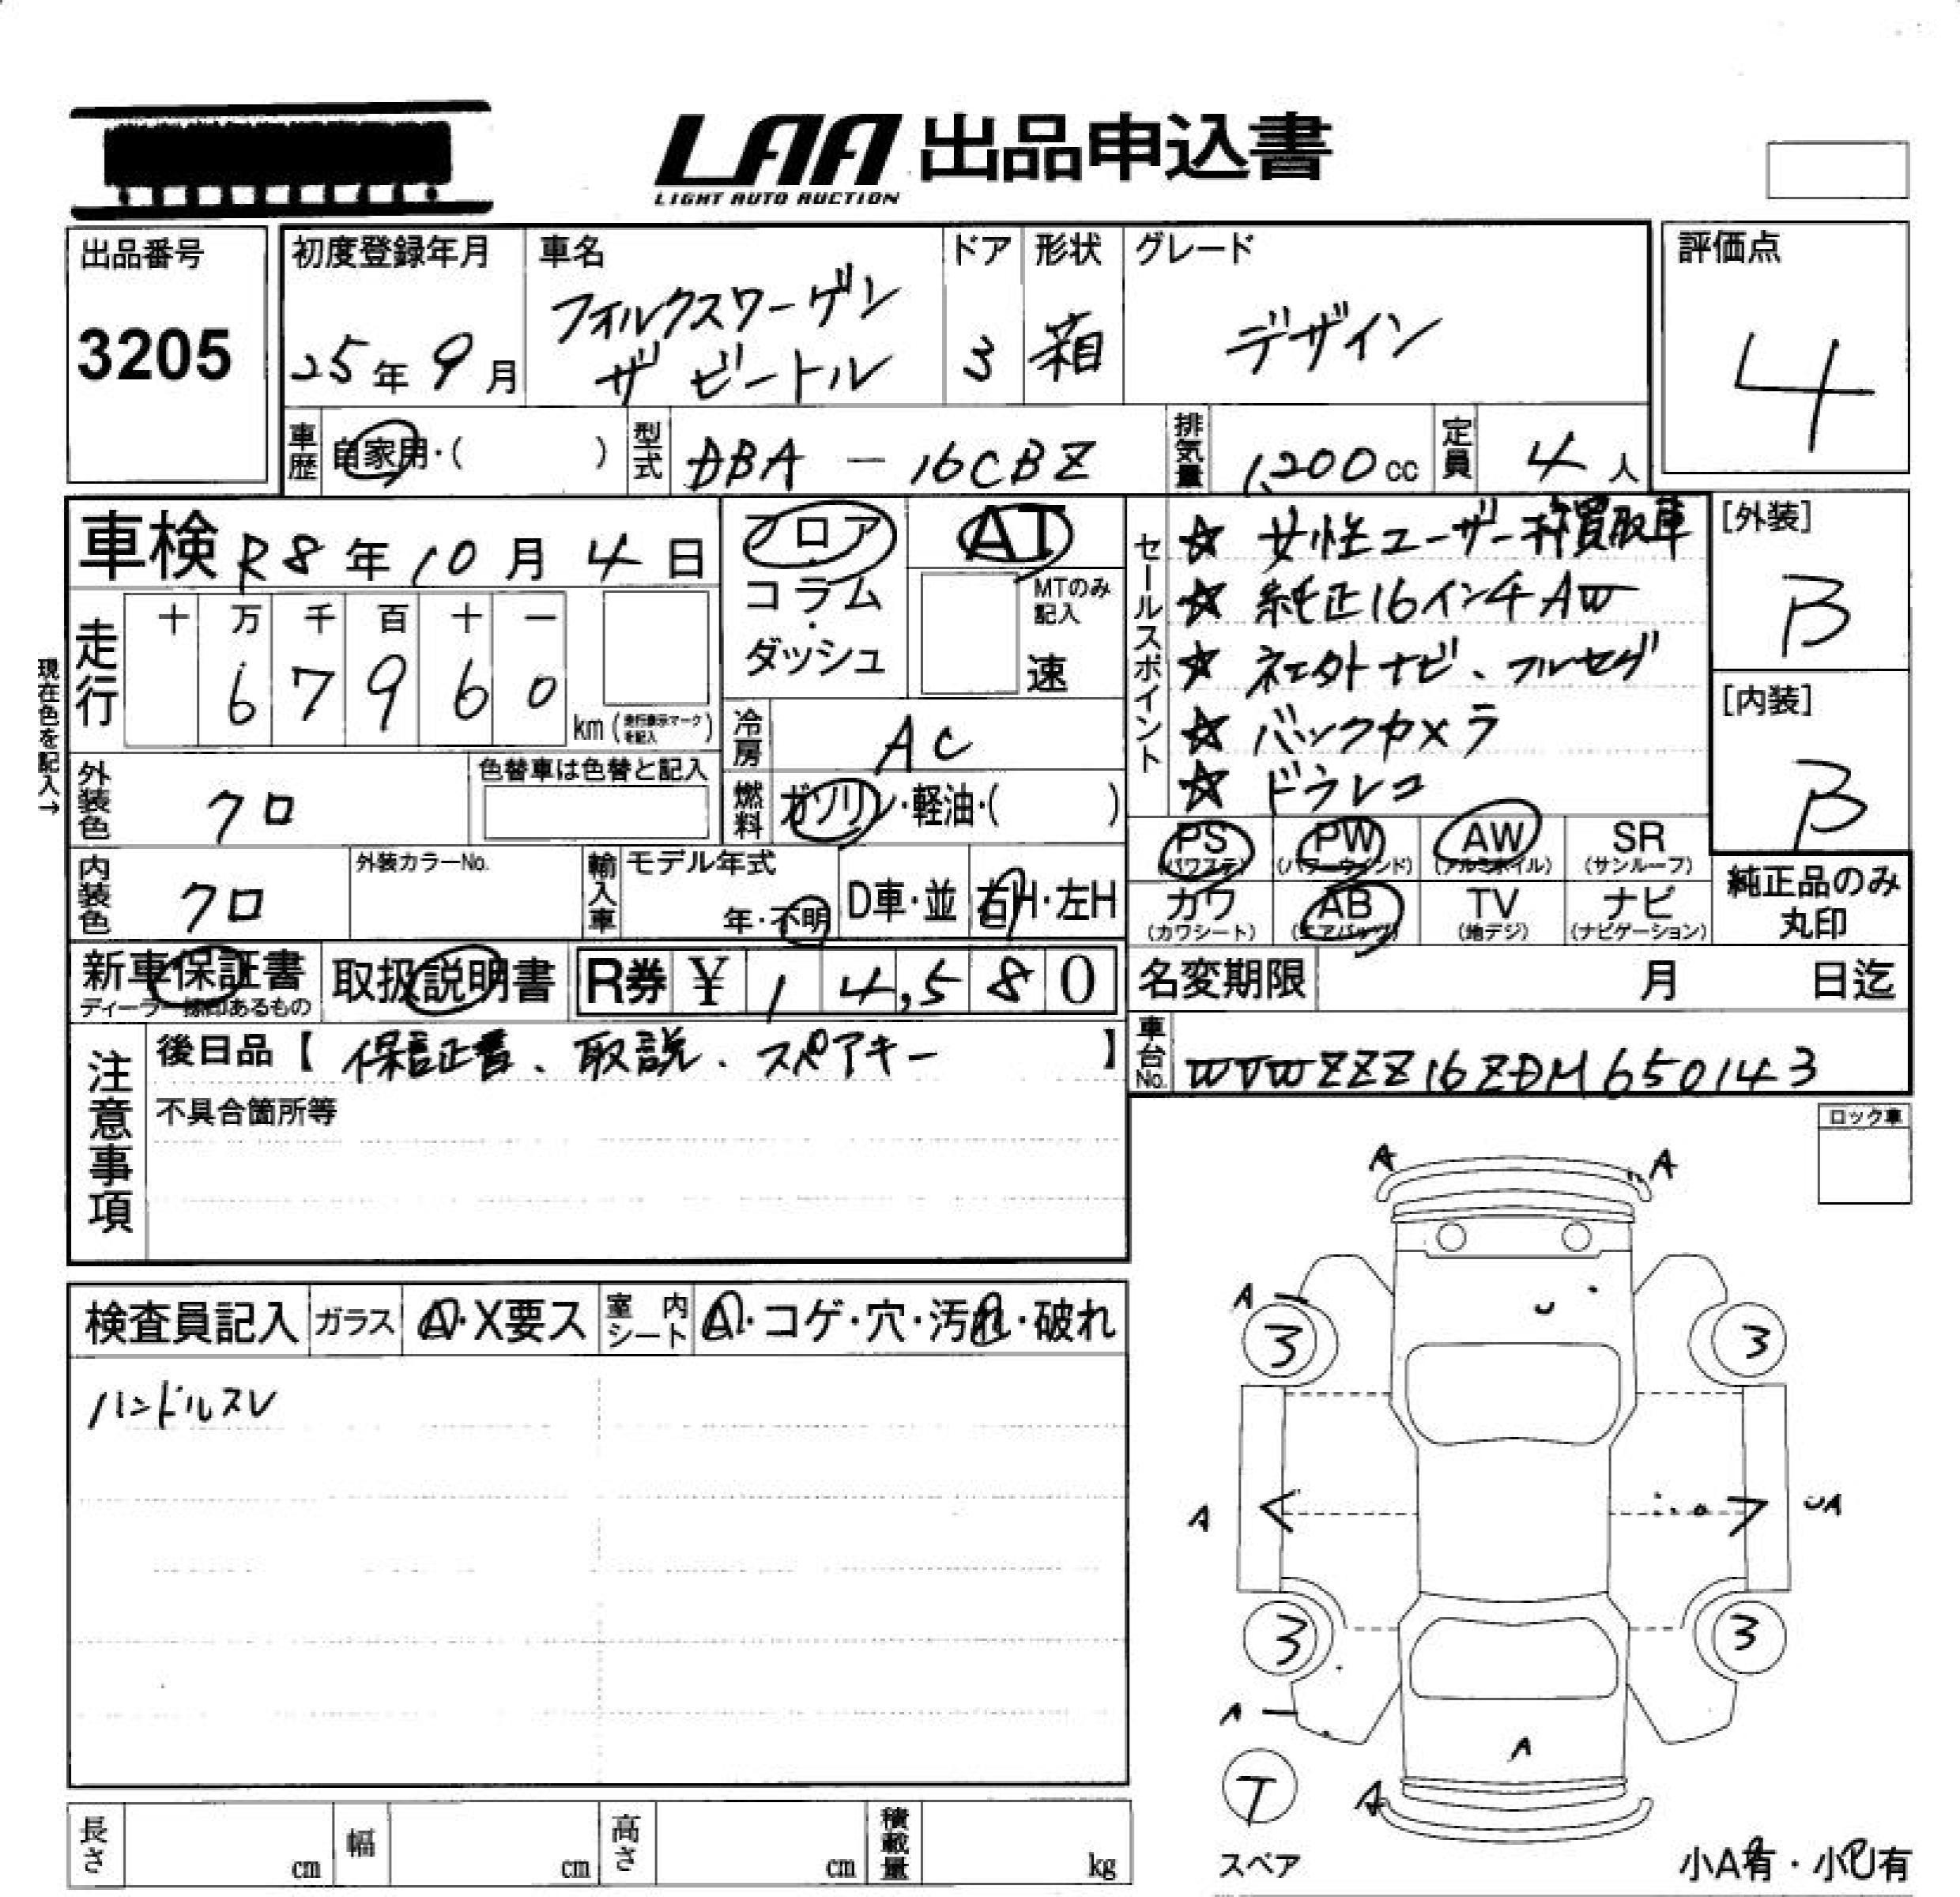 LAA 出品申込書
LIGHT AUTO AUCTION
出品番号
3205
初度登録年月
25年9月
車名
フォルクスワーゲン
ザ ビートル
ドア
3
形状
箱
グレード
デザイン
評価点
4
車歴 自家用・( )
型式 DBA - 16CBZ
排気量 1,200cc
定員 4人
車検 R8年10月4日
フロア・コラム・ダッシュ
AT
MTのみ記入
速
走行
十 万 千 百 十 一
6 7 9 6 0
km(走行表示マークを記入)
現在色を記入→
冷房 AC
外装色 クロ
色替車は色替と記入
燃料 ガソリン・軽油・( )
内装色 クロ
外装カラーNo.
輸入車
モデル年式
年・不明
D車・並
右H・左H
セールスポイント
☆ 女性ユーザー様買取車
☆ 純正16インチAW
☆ 社外ナビ、フルセグ
☆ バックカメラ
☆ ドラレコ
[外装]
B
[内装]
B
PS(パワステ) PW(パワーウインド) AW(アルミホイル) SR(サンルーフ)
カワ(カワシート) AB(エアバッグ) TV(地デジ) ナビ(ナビゲーション)
純正品のみ丸印
新車保証書
取扱説明書
R券 ¥ 14,580
名変期限 月 日迄
注意事項
後日品【 保証書、取説、スペアキー 】
不具合箇所等
車台No. WVWZZZ16ZDM650143
ロック車
検査員記入 ガラス A・X要ス 室内シート A・コゲ・穴・汚れ・破れ
ハンドルスレ
A A
A
3 3
A UA
3 3
A
A
T
A
スペア
小A有・小U有
長さ cm 幅 cm 高さ cm 積載量 kg